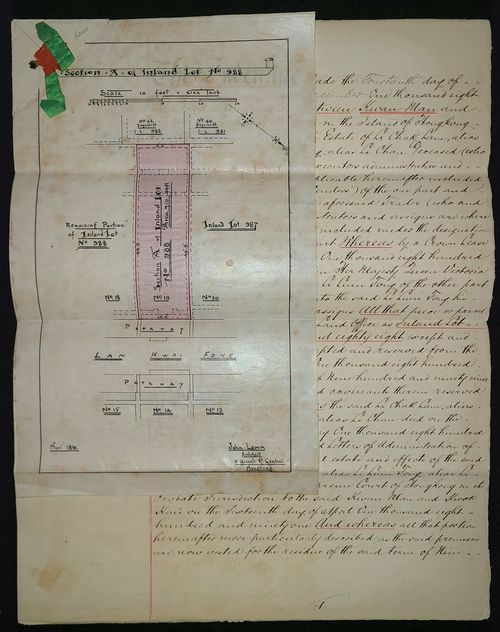 Section · A · of Inland Lot No 988
Scale 10 feet = One Inch
No 44
I.L. 988
No 40
I.L. 987
Section "A" of Inland Lot
No 988
Remaining Portion
of Inland Lot
No 988
Inland Lot 987
No 18
No 19
No 20
Pathway
LAN KWAI FONG
Pathway
No 15
No 14
No 13
Nov 1891
John Lemm
Architect
Queen's Rd Central
Hongkong
made the Fourteenth day of
One thousand eight
between Kwan Man and
in the Island of Hongkong
Estate of Li Chuk Lam, alias
alias Li Chan Deceased (who
executors administrators and
applicable hereinafter included
) of the one part and
aforesaid Trader (who and
administrators and assigns are where
included under the designation
part Whereas by a Crown Lease
One thousand eight hundred
Her Majesty Queen Victoria
Li Lum Tong of the other part
to the said Li Lum Tong his
assigns All that piece or parcel
Land Office as Inland Lot
and eighty eight except and
excepted and reserved from the
One thousand eight hundred
Nine hundred and ninety nine
and covenants therein reserved
the said Li Chuk Lam, alias
alias Li Chan died on the
One thousand eight hundred
Letters of Administration of
estate and effects of the said
alias Li Lum Tong, alias Li
Supreme Court of Hongkong in its
Probate Jurisdiction to the said Kwan Man and Kwok
on the Sixteenth day of April One thousand eight
hundred and ninety one And whereas all that portion
hereinafter more particularly described as the said premises
are now vested for the residue of the said term of Nine